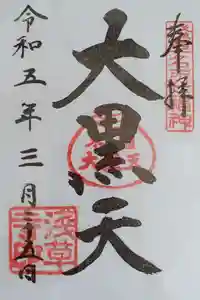 奉拝
大黒天
令和五年三月二十五日
浅草